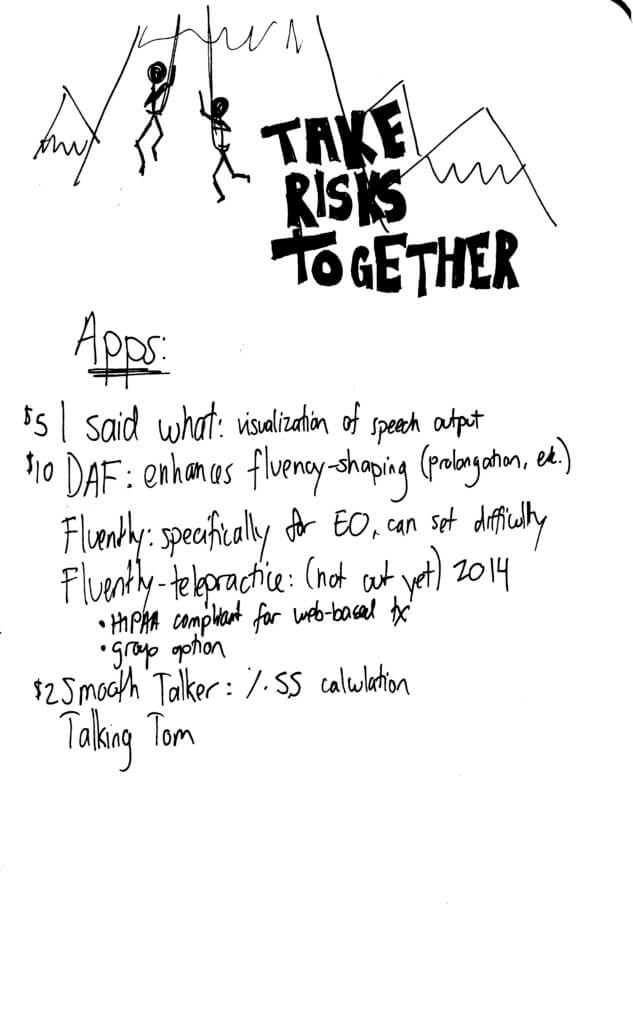 TAKE
RISKS
TOGETHER
Apps:
$5 I said what: visualization of speech output
$10 DAF: enhances fluency-shaping (prolongation, etc.)
Fluently: specifically for EO, can set difficulty
Fluently-telepractice: (not out yet) 2014
• HIPAA compliant for web-based tx
• group option
$2 Smooth Talker: %SS calculation
Talking Tom